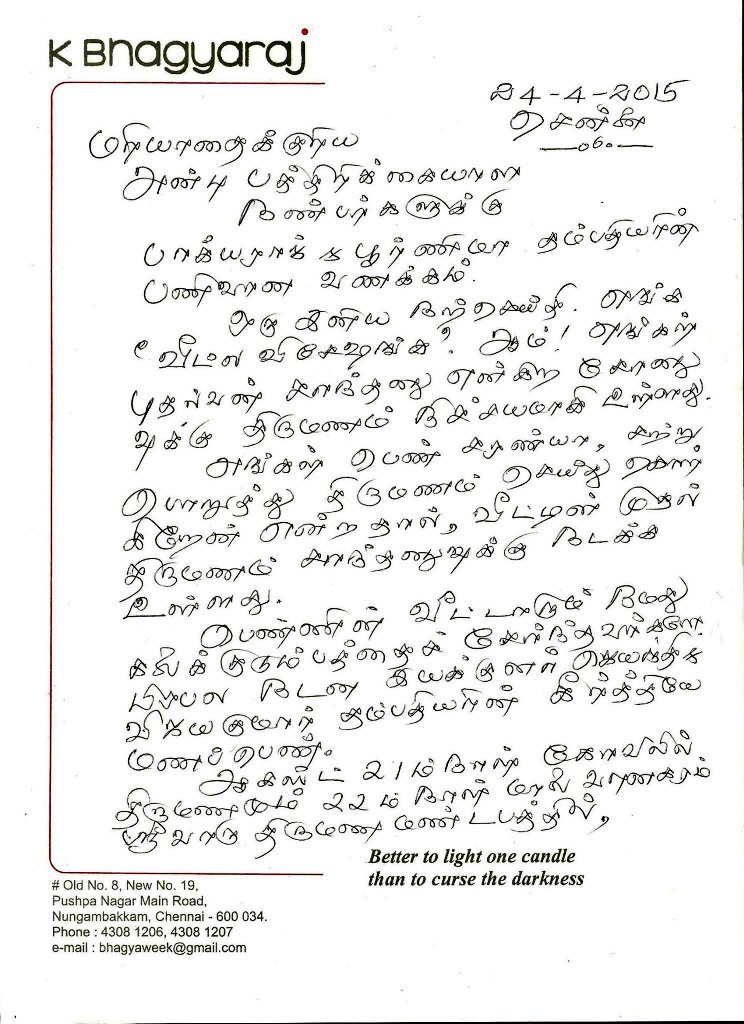 K Bhagyaraj
24-4-2015
சென்னை
மரியாதைக்குரிய
அன்பு பத்திரிக்கையாள
நண்பர்களுக்கு
பாக்யராஜ் & பூர்ணிமா தம்பதியரின்
பணிவான வணக்கம்.
ஒரு இனிய நற்செய்தி. எங்க
வீட்ல விசேஷங்க? ஆம்! எங்கள்
புதல்வன் சாந்தனு என்கிற சோனு
வுக்கு திருமணம் நிச்சயமாகி உள்ளது.
எங்கள் பெண் சரண்யா, சற்று
பொறுத்து திருமணம் செய்து கொள்
கிறேன் என்றதால், வீட்டின் முதல்
திருமணம் சாந்தனுவுக்கு நடக்க
உள்ளது.
பெண்ணின் வீட்டாரும் நமது
கலைக் குடும்பத்தைச் சேர்ந்தவர்களே.
பிரபல நடன இயக்குனர் ஜெயந்தி
விஜயகுமார் தம்பதியரின் கீர்த்தியே
மணப்பெண்.
ஆகஸ்ட் 21ம் நாள் கோவிலில்
திருமணமும் 22ம் நாள் மாலை வானகரம்
ஸ்ரீ வாரு திருமண மண்டபத்தில்,
Better to light one candle
than to curse the darkness
# Old No. 8, New No. 19,
Pushpa Nagar Main Road,
Nungambakkam, Chennai - 600 034.
Phone : 4308 1206, 4308 1207
e-mail : bhagyaweek@gmail.com